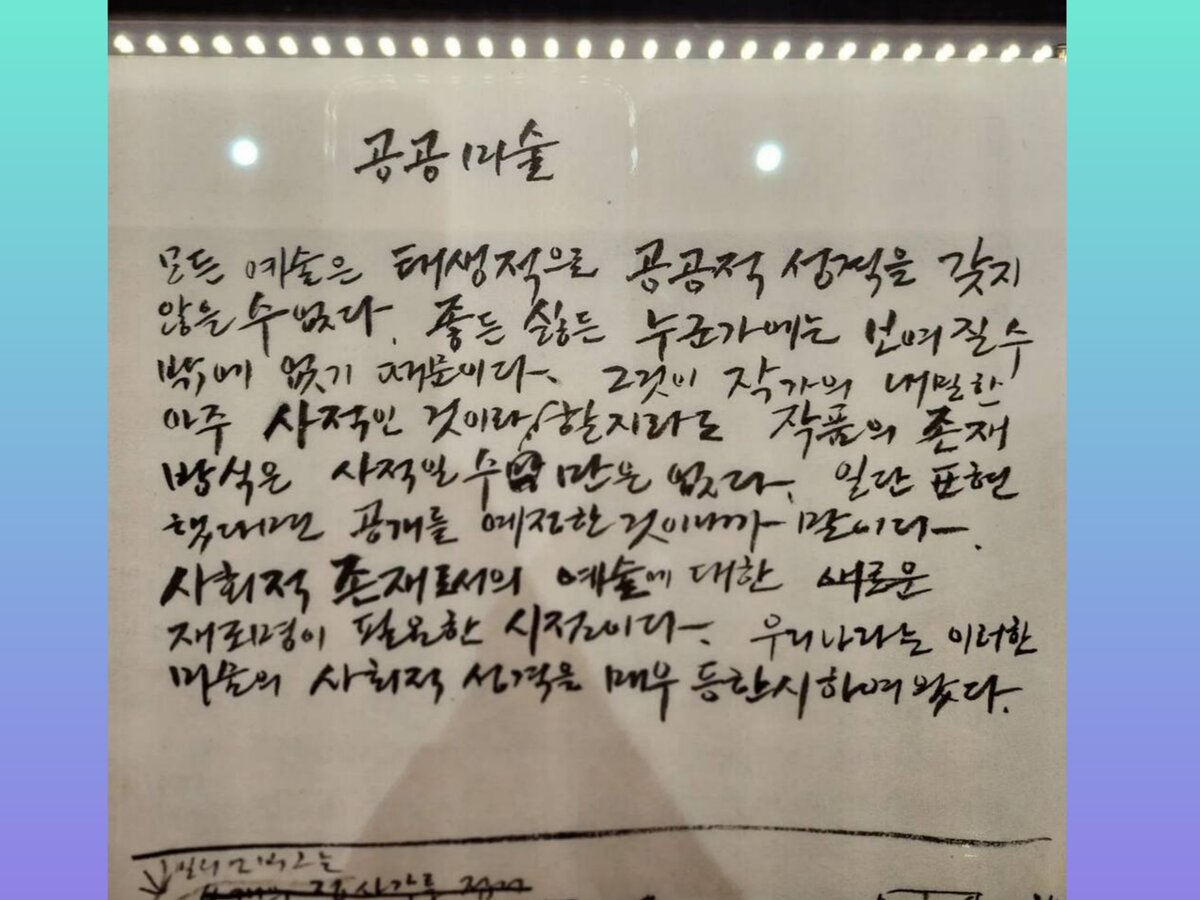 공공미술
모든 예술은 태생적으로 공공적 성격을 갖지
않을 수 없다. 좋든 싫든 누군가에는 보여질 수
밖에 없기 때문이다. 그것이 작가의 내밀한
아주 사적인 것이라 할지라도 작품의 존재
방식은 사적일 수만은 없다. 일단 표현
했다면 공개를 예정한 것이니까 말이다.
사회적 존재로서의 예술에 대한 새로운
재조명이 필요한 시점이다. 우리나라는 이러한
미술의 사회적 성격을 매우 등한시하여 왔다.